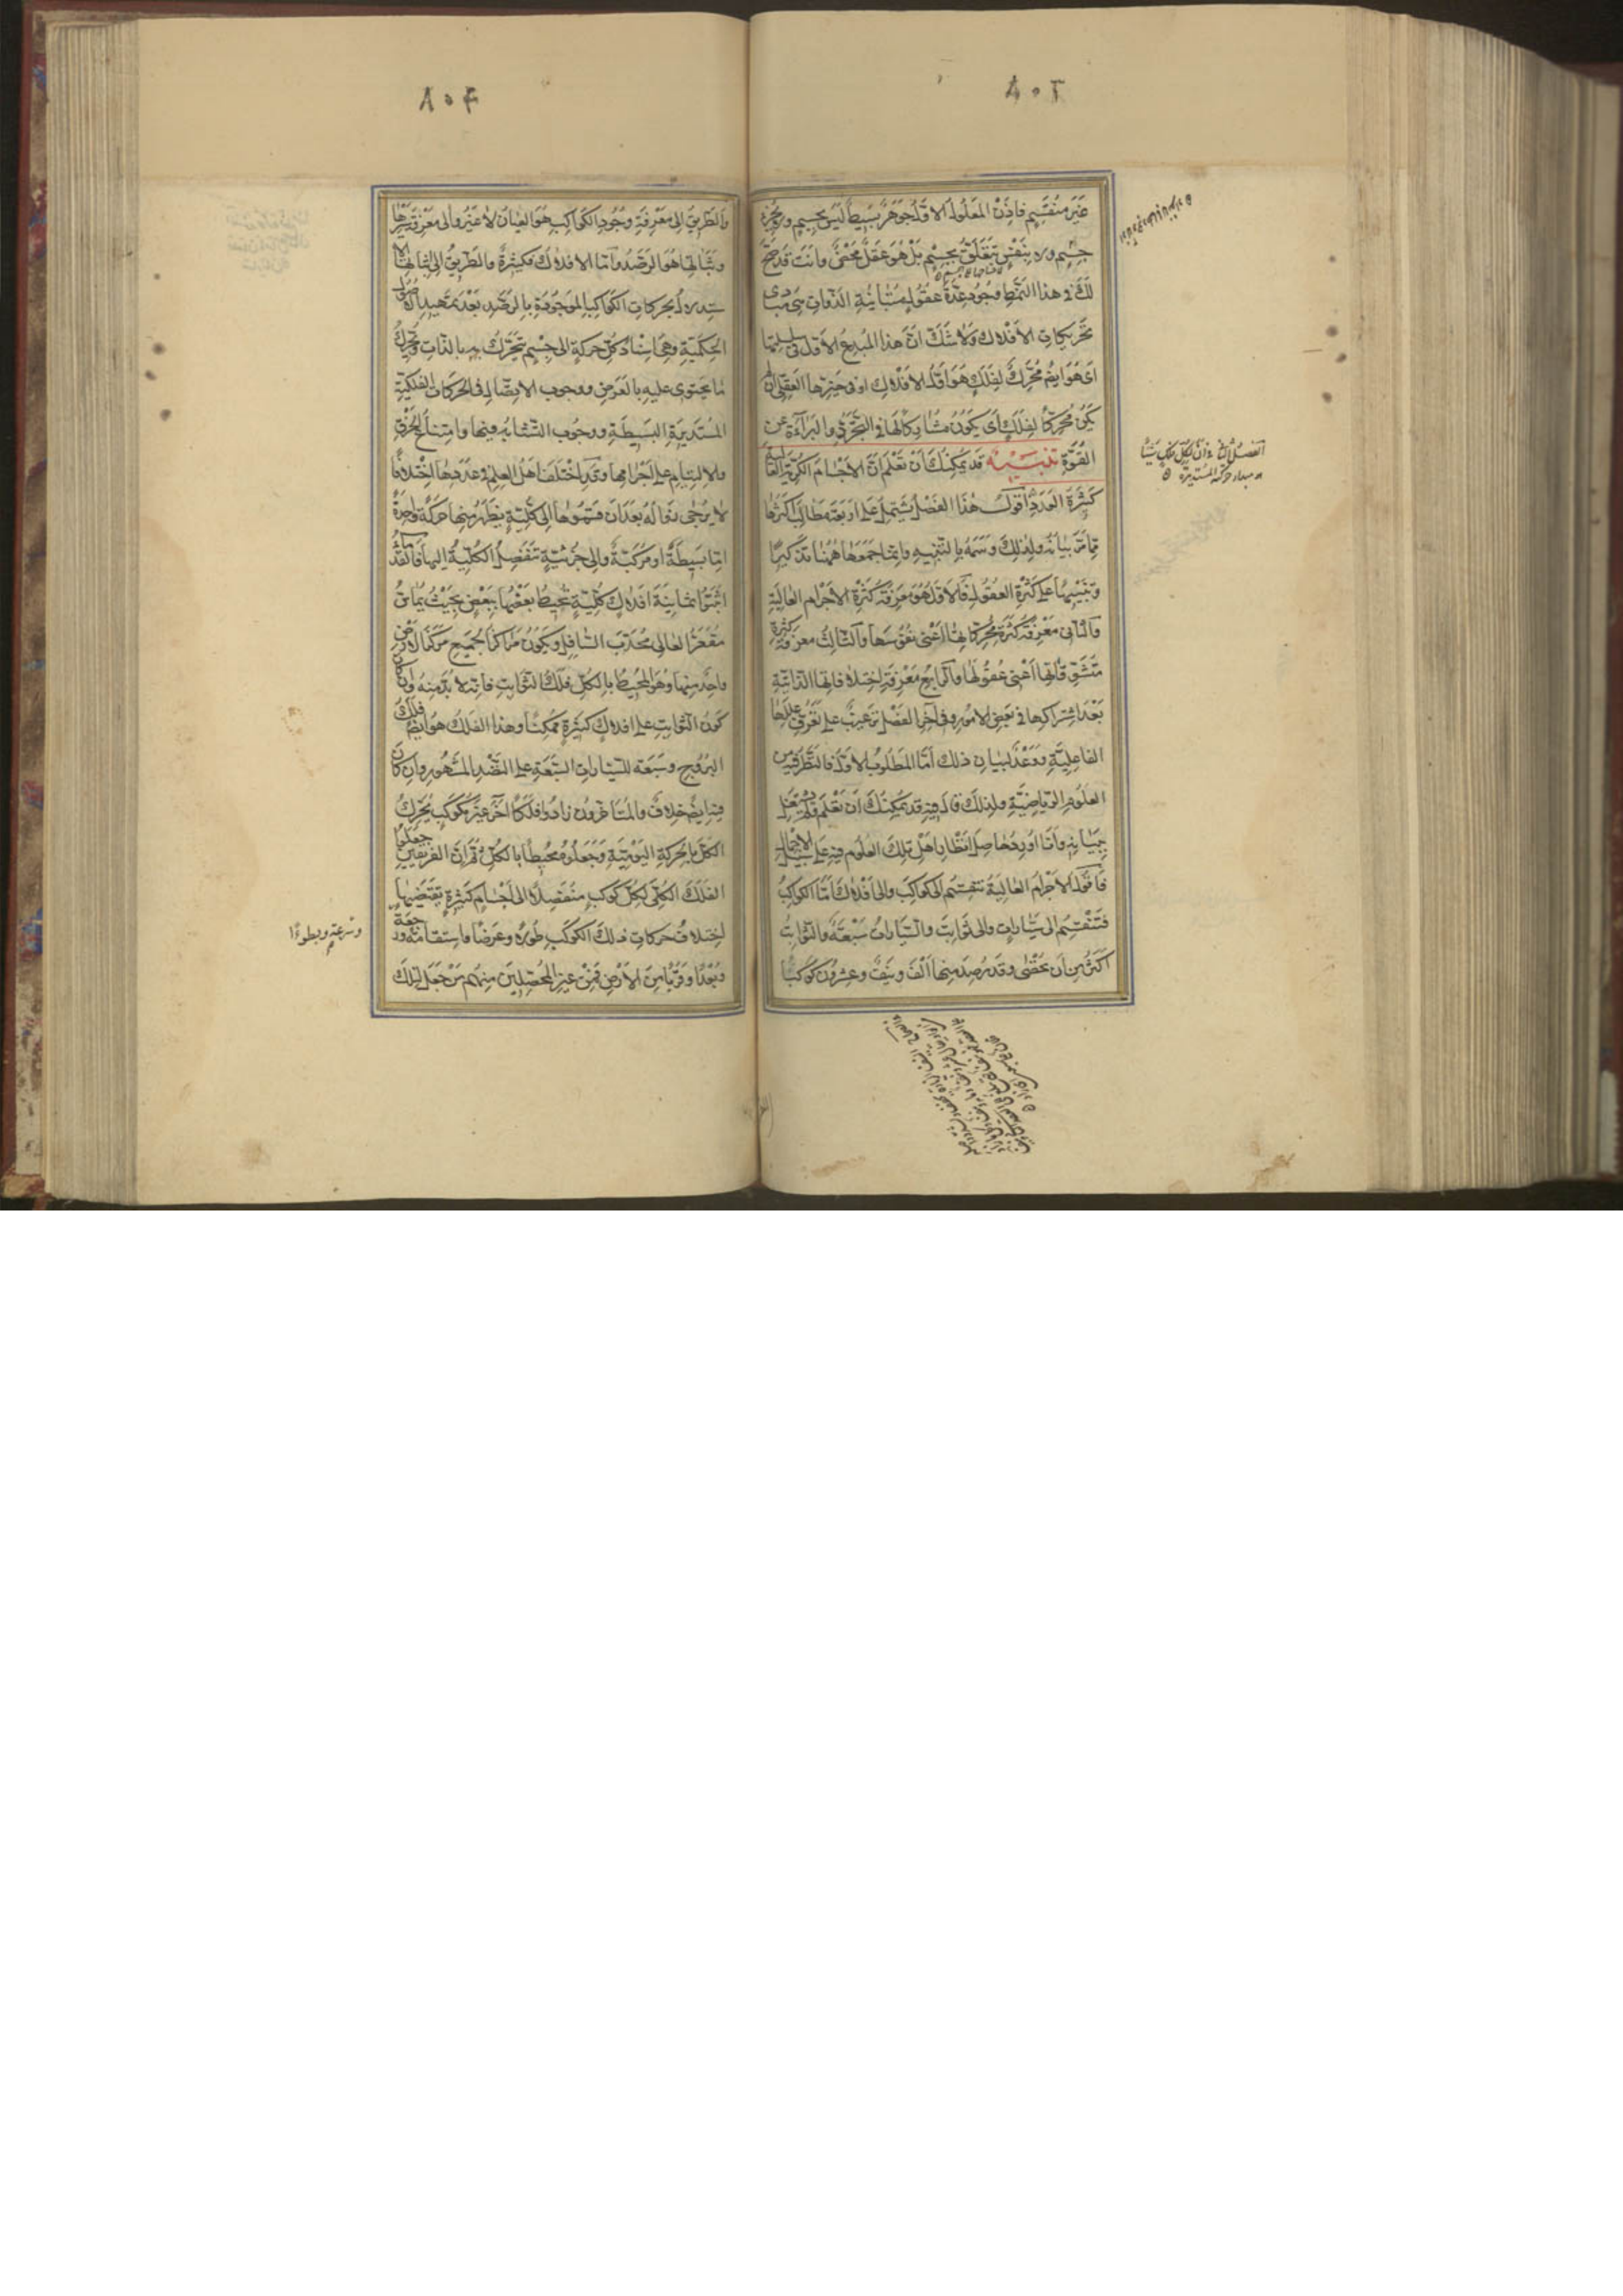 ٨٠٣
غير منقسم فاذن المعلول الاول جوهر بسيط ليس بجسم ولا جزء
جسم ولا بنفس تتعلق بجسم بل هو عقل محض وانت قد صح
لك فى هذا النمط وجود عدة عقول متباينة الذوات هى مبادى
تحريكات الافلاك ولا شك ان هذا المبدع الاول فى سلسلتها
اى هو ايضا محرك لفلك هو اول الافلاك او فى حيزها العقلى ان لم
يكن محركا لفلك اى يكون مشاركا لها فى التجرد والبراءة عن
القوة تنبيه قد يمكنك ان تعلم ان الاجسام الكرية العالية
كثيرة العدد اقول هذا الفصل يشتمل على اربعة مطالب اكثرها
مما مر بيانه ولذلك وسمه بالتنبيه وانما جمعها ههنا تذكيرا
وتنبيها على كثرة العقول فالاول هو معرفة كثرة الاجرام العالية
والثانى معرفة كثرة محركاتها اعنى نفوسها والثالث معرفة كثرة
متشوقاتها اعنى عقولها والرابع معرفة اختلافاتها الذاتية
بعد اشتراكها فى بعض الامور وفى آخر الفصل ترغيب على تعرف عللها
الفاعلية ووعد لبيان ذلك اما المطلوب الاول فالنظر فيه من
العلوم الرياضية ولذلك قال فيه قد يمكنك ان تعلم ولم يشتغل
ببيانه وانا اورد حاصل انظار اهل تلك العلوم فيه على سبيل الاجمال
فاقول الاجرام العالية تنقسم الى كواكب والى افلاك اما الكواكب
فتنقسم الى سيارات والى ثوابت والسيارات سبعة والثوابت
اكثر من ان تحصى وقد رصد منها الف ونيف وعشرون كوكبا
الفصل الثانى فى ان لكل فلك شيئا
هو مبدأ حركته المستديرة
٨٠٤
والطريق الى معرفة وجود الكواكب هو العيان لا غير والى معرفة سيرها
وثباتها هو الرصد واما الافلاك فكثيرة والطريق الى اثباتها الا
ستدلال بحركات الكواكب الموجودة بالرصد بعد تمهيد الاصول
الحكمية وهى اسناد كل حركة الى جسم يتحرك بها بالذات ويحرك
ما يحتوى عليه بالعرض ووجوب الاتصال فى الحركات الفلكية
المستديرة البسيطة ووجوب التشابه فيها وامتناع الخرق
والالتيام على اجرامها وقد اختلف اهل العلم فى عددها اختلافا
لا يرجى زواله بعد ان قسموها الى كلية يظهر منها حركة واحدة
اما بسيطة او مركبة والى جزئية تنفصل الكلية اليها فالقدماء
اثبتوا ثمانية افلاك كلية يحيط بعضها ببعض بحيث يماس
مقعر العالى محدب السافل ويكون مراكز الجميع مركز الارض
واحد منها وهو المحيط بالكل فلك الثوابت فانه لا بد منه وان كان
كون الثوابت على افلاك كثيرة ممكنا وهذا الفلك هو ايضا فلك
البروج وسبعة للسيارات السبعة على النضد المشهور وان كان
فيه ايضا خلاف والمتأخرون زادوا فلكا آخر غير مكوكب يحرك
الكل بالحركة اليومية وجعلوه محيطا بالكل ثم ان الفريقين جعلوا
الفلك الكلى لكل كوكب منفصلا الى اجسام كثيرة يقتضيها
اختلاف حركات ذلك الكوكب طولا وعرضا واستقامة ورجعة
وسرعة وبطوءا
وبعدا وقربا من الارض فمن غير المحصلين منهم من جعل تلك